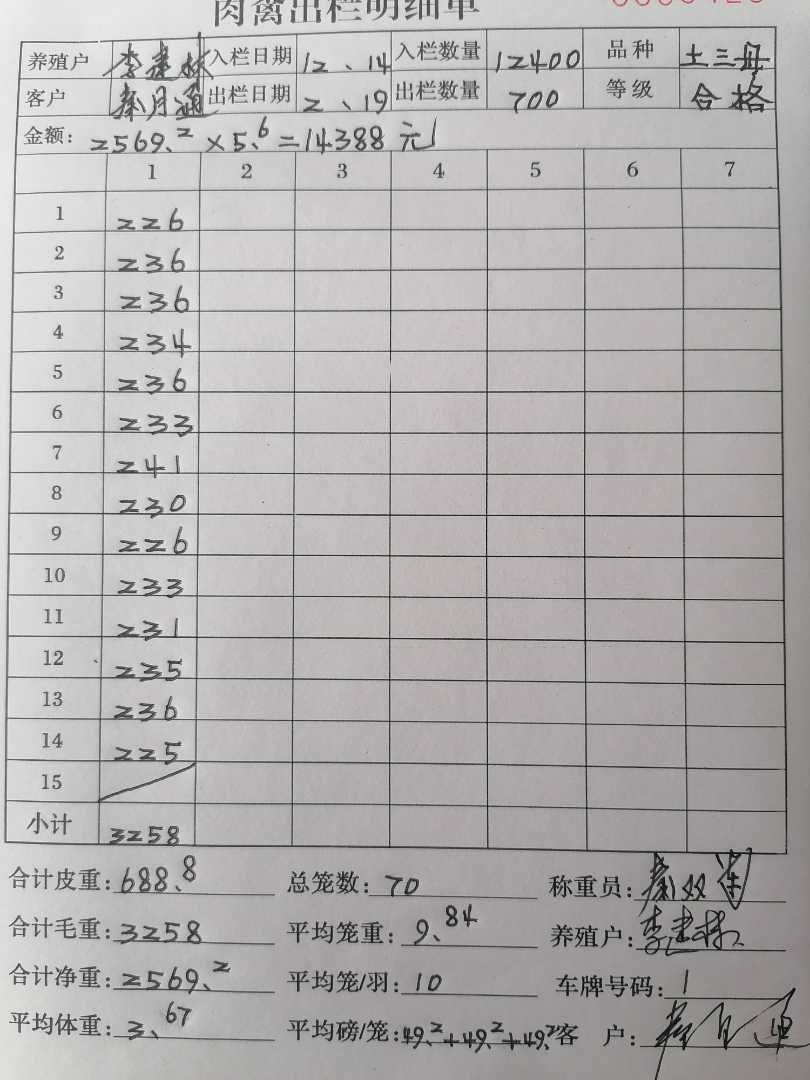 肉禽出栏明细单
养殖户 李建林 入栏日期 12、14 入栏数量 12400 品种 土三母
客户 秦月通 出栏日期 2、19 出栏数量 700 等级 合格
金额: 2569.2×5.6=14388元
1 2 3 4 5 6 7
1 226
2 236
3 236
4 234
5 236
6 233
7 241
8 230
9 226
10 233
11 231
12 235
13 236
14 225
15
小计 3258
合计皮重: 688.8 总笼数: 70 称重员:
合计毛重: 3258 平均笼重: 9.84 养殖户: 李建林
合计净重: 2569.2 平均笼/羽: 10 车牌号码: 1
平均体重: 3.67 平均磅/笼: 49.2+49.2+49.2 客 户: 秦月通